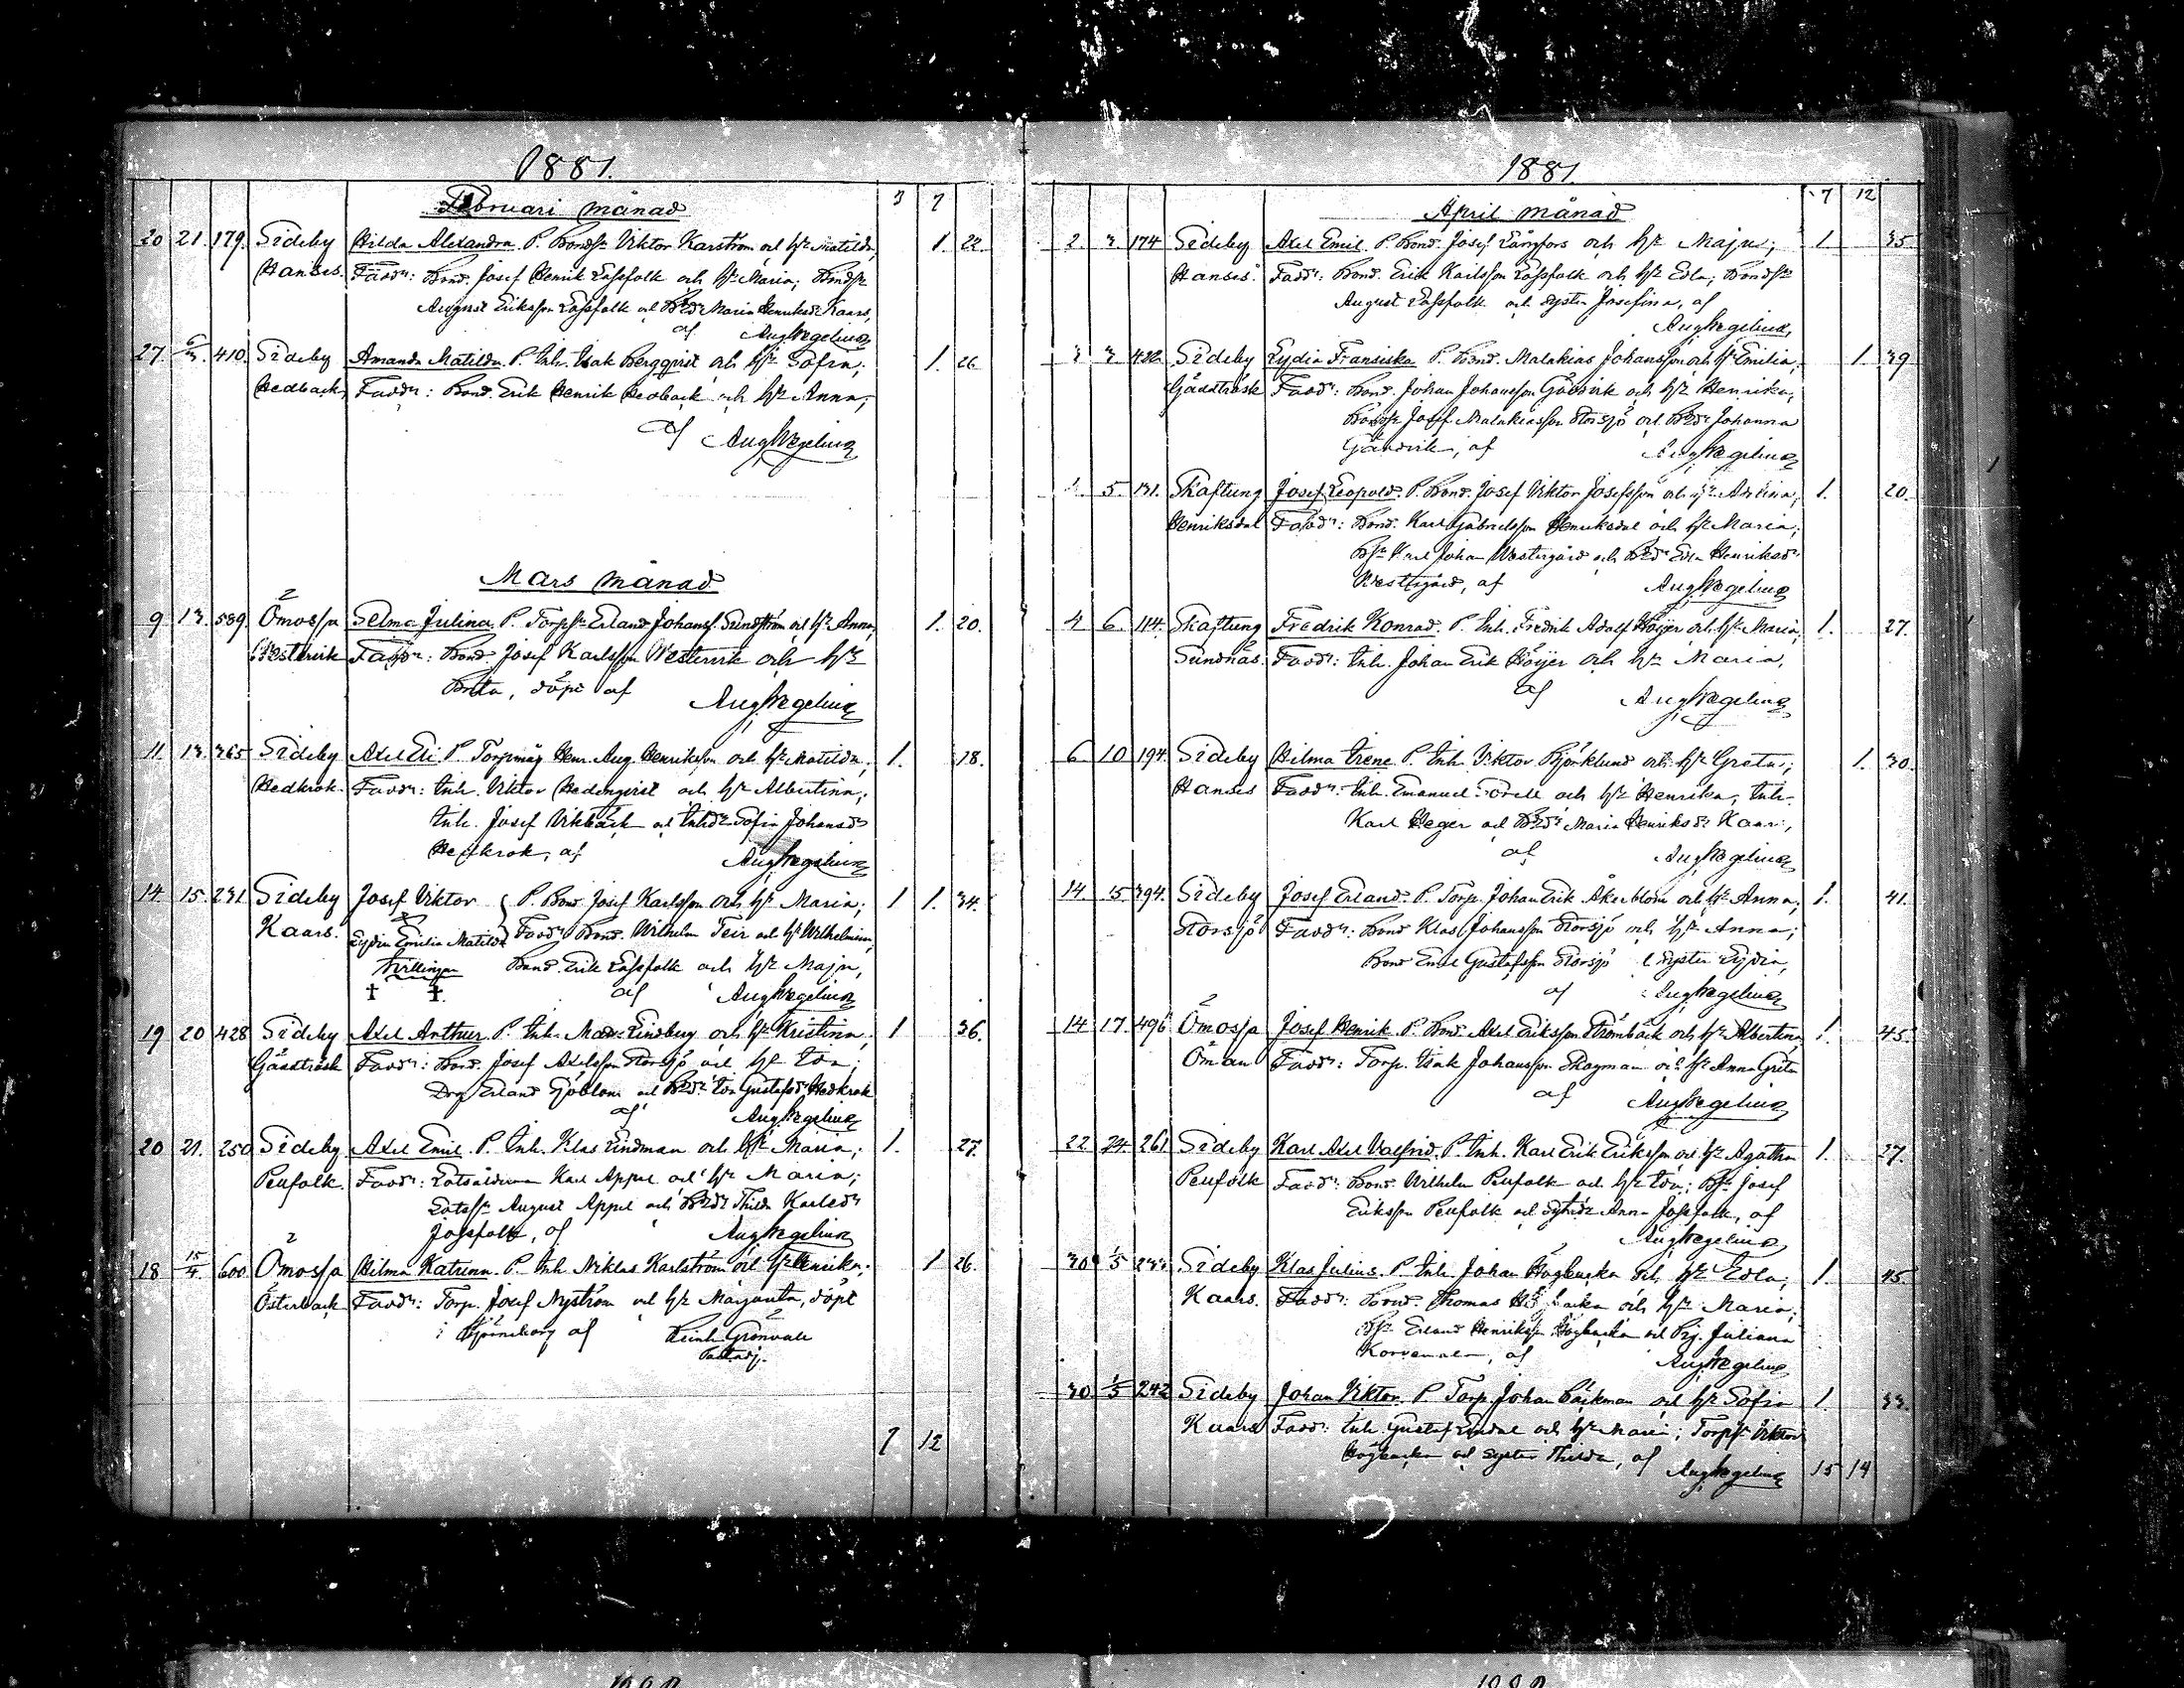 1881.
Februari månad 3 7
20 21. 179. Sideby Hilda Alexandra. P. Bondss. Viktor Karström och h. Matilda, 1. 22.
Hanses. Fadd.: Bond. Josef Henrik Lassfolk och h. Maria; Bondss.
August Eriksson Lassfolk och Maria Henriksd. Kaars,
af Aug Wegelius
27. 6/3. 410. Sideby Amanda Matilda. P. Inh. Isak Bergqvist och h. Sofia; 1. 26.
Hedback Fadd.: Bond. Erik Henrik Hedback och h. Anna;
af Aug Wegelius
Mars månad
9 13. 589. Ömossa Selma Julina. P. Torpss. Erland Johanss. Sundström och h. Anna, 1. 20.
Westervik Fadd.: Bond. Josef Karlsson Westervik och h.
Brita, döpt af Aug Wegelius
11. 13. 365 Sideby Axel Eli. P. Torpmåg Henr. Aug. Henriksson och h. Matilda; 1. 18.
Hedkrok. Fadd.: Inh. Viktor Hedenqvist och h. Albertina;
Inh. Josef Vikback och Sofia Johansd.
Hedkrok, af Aug Wegelius
14. 15. 231 Sideby Josef Viktor P. Bond. Josef Karlsson och h. Maria; 1 1. 34.
Kaars. Lydia Emilia Matilda Fadd. Bond. Wilhelm Teir och h. Wilhelmina,
Tvillingar Bond. Erik Lassfolk och h. Maja,
† † af Aug Wegelius
19 20 428 Sideby Axel Arthur. P. Inh. Lindberg och h. Kristina; 1 36.
Gåssträsk Fadd.: Bond. Josef Axelsson Storsjö och h. Eva;
Erland Sjöblom och Gustafsd. Hedkrok
af Aug Wegelius
20 21. 250 Sideby Axel Emil. P. Inh. Klas Lindman och h. Maria; 1. 27.
Penfolk. Fadd.: Karl Appel och h. Maria;
August Appel och Thilda Karlsd.
Jossfolk, af Aug Wegelius
18 15/4. 600 Ömossa Hilma Katrina. P. Inh. Niklas Karlström och h. Henrika; 1 26.
Österback Fadd.: Torp. Josef Nyström och h. Margareta, döpt
i Björneborg af Reinh. Grönvall
7 12
1881.
April månad 7 12
2. 3. 174 Sideby Axel Emil. P. Bond. Josef Långfors och h. Maja; 1. 35.
Hanses Fadd.: Bond. Erik Karlsson Lassfolk och h. Edla; Bondss.
August Lassfolk och syster Josefina, af
Aug Wegelius
3 3 Sideby Lydia Fransiska P. Bond. Malakias Johansson och h. Emilia, 1. 39
Gåsträsk Fadd.: Bond. Johan Johansson Gåsvik och h. Henrika;
Josef Malakiasson Storsjö och Johanna
af Aug Wegelius
5. 131. Skaftung Josef Leopold. P. Bond. Josef Viktor Josefsson och h. 1. 20.
Henriksdal Fadd.: Bond. Karl Gabrielsson Henriksdal och h. Maria;
Karl Johan Westergård och Henriksd.
Westergård, af Aug Wegelius
4 6. 114. Skaftung Fredrik Konrad. P. Inh. Fredrik Adolf Höijer och h. Maria, 1. 27.
Sundnäs. Fadd.: Inh. Johan Erik Höijer och h. Maria,
af Aug Wegelius
6. 10 194. Sideby Hilma Irene. P. Inh. Viktor Björklund och h. Greta; 1. 30.
Hanses Fadd.: Inh. Emanuel och h. Henrika; Inh.
Karl Heger och Maria Henriksd. Kaars,
af Aug Wegelius
14. 15. 394. Sideby Josef Erland. P. Torp. Johan Erik Åkerblom och h. Anna; 1. 41.
Storsjö Fadd.: Bond. Klas Johansson Storsjö och h. Anna;
Bond Gustafsson Storsjö syster Lydia,
af Aug Wegelius
14 17. 496 Ömossa Josef Henrik. P. Bond. Axel Eriksson Strömbäck och h. Albertina 1. 45.
Öman Fadd.: Torp. Isak Johansson Skogman och h. Anna Greta
af Aug Wegelius
22. 24. 261 Sideby Karl Axel Valfrid. P. Inh. Karl Erik Eriksson och h. Agatha 1. 27.
Penfolk Fadd.: Bond. Wilhelm Penfolk och h. Eva; Josef
Eriksson Penfolk och Anna Jossfolk, af
Aug Wegelius
30 1/5 Sideby Klas Julius. P. Inh. Johan Högbacka och h. Edla; 1. 45.
Kaars. Fadd.: Bond. Thomas och h. Maria;
Erland Henriksson Högbacka och Juliana
af Aug Wegelius
30. 1/5 242 Sideby Johan Viktor. P. Torp. Johan Bäckman och h. Sofia 1 33.
Kaars Fadd: Inh. Gustaf och h. Maria; Torpss. Viktor
Högbacka och syster Thilda, af Aug Wegelius 15 14